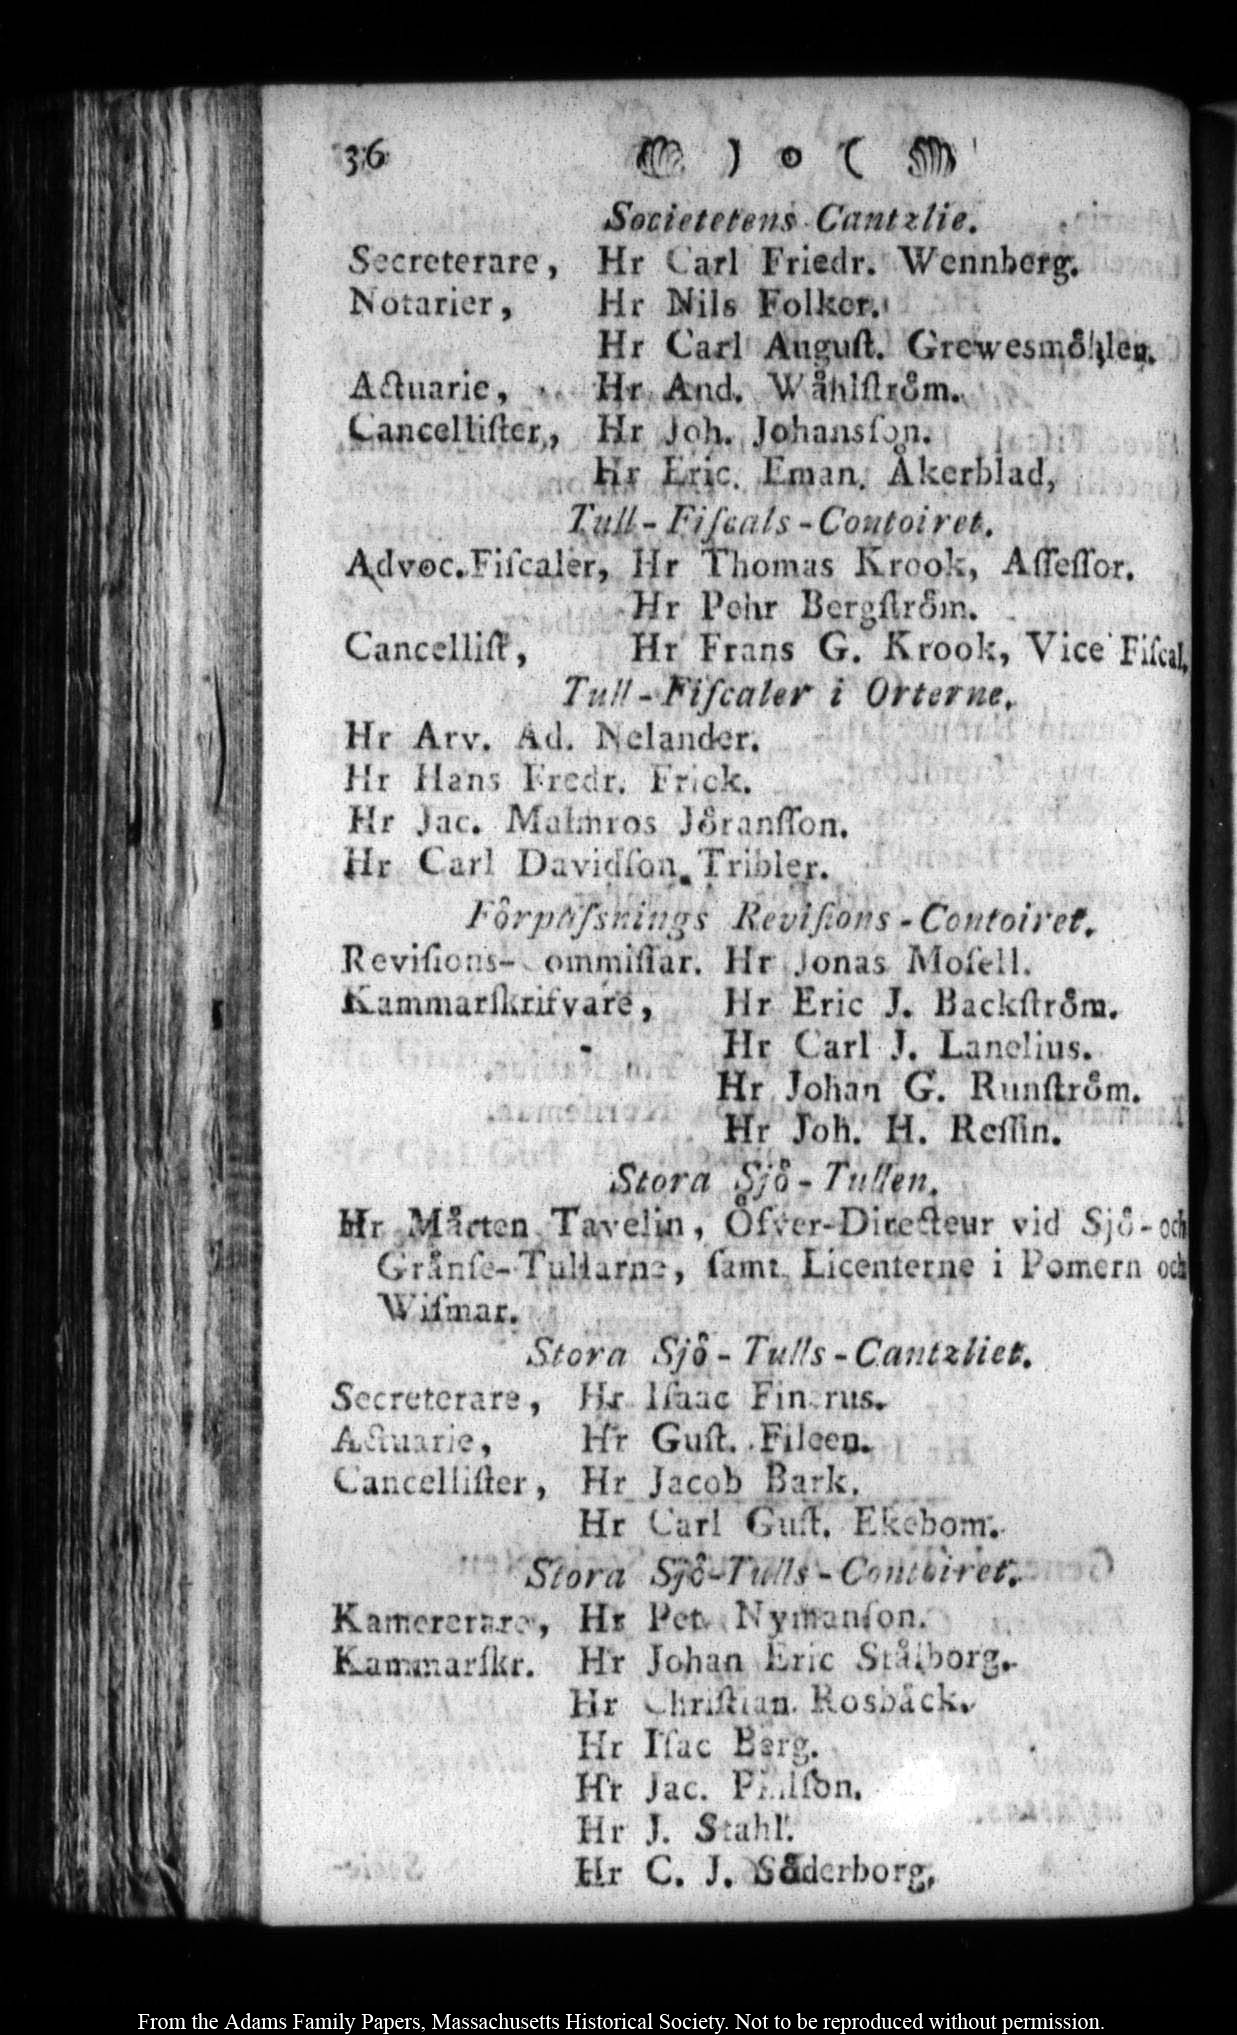 36 ) o (
Societetens Cantzlie.
Secreterare, Hr Carl Friedr. Wennberg.
Notarier, Hr Nils Folker.
Hr Carl Auguſt. Grewesmôhlen.
Actuarie, Hr And. Wåhlſtrôm.
Cancelliſter, Hr Joh. Johansſon.
Hr Eric. Eman. Åkerblad,
Tull-Fiſcals-Contoiret.
Advoc. Fiſcaler, Hr Thomas Krook, Aſſeſſor.
Hr Pehr Bergſtrôm.
Cancelliſt, Hr Frans G. Krook, Vice Fiſcal.
Tull-Fiſcaler i Orterne.
Hr Arv. Ad. Nelander.
Hr Hans Fredr. Frick.
Hr Jac. Malmros Jôranſſon.
Hr Carl Davidſon Tribler.
Fôrpaſsnings Reviſions-Contoiret.
Reviſions- ommiſſar. Hr Jonas Moſell.
Kammarſkrifvare, Hr Eric J. Backſtrôm.
Hr Carl J. Lanelius.
Hr Johan G. Runſtrôm.
Hr Joh. H. Reſſin.
Stora Sjô-Tullen.
Hr Mårten Tavelin, Ôfver-Directeur vid Sjô- och
Grånſe-Tullarne, ſamt Licenterne i Pomern och
Wiſmar.
Stora Sjô-Tulls-Cantzliet.
Secreterare, Hr Iſaac
Actuarie, Hr Guſt. Fileen.
Cancelliſter, Hr Jacob Bark.
Hr Carl Guſt. Ekebom.
Stora Sjô-Tulls-Contoiret.
Kamererare, Hr Pet. Nymanſon.
Kammarſkr. Hr Johan Eric Stålborg.
Hr Chriſtian Rosbåck.
Hr Iſac Berg.
Hr Jac.
Hr J. Stahl.
Hr C. J. Sôderborg,
From the Adams Family Papers, Massachusetts Historical Society. Not to be reproduced without permission.